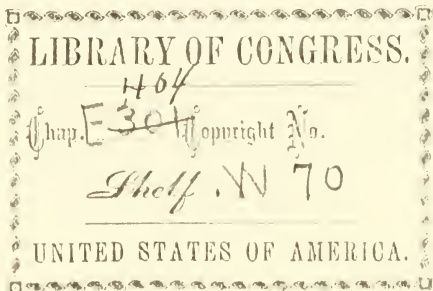 LIBRARY OF CONGRESS.
404
Chap. E 301 Copyright No.
Shelf .W 70
UNITED STATES OF AMERICA.